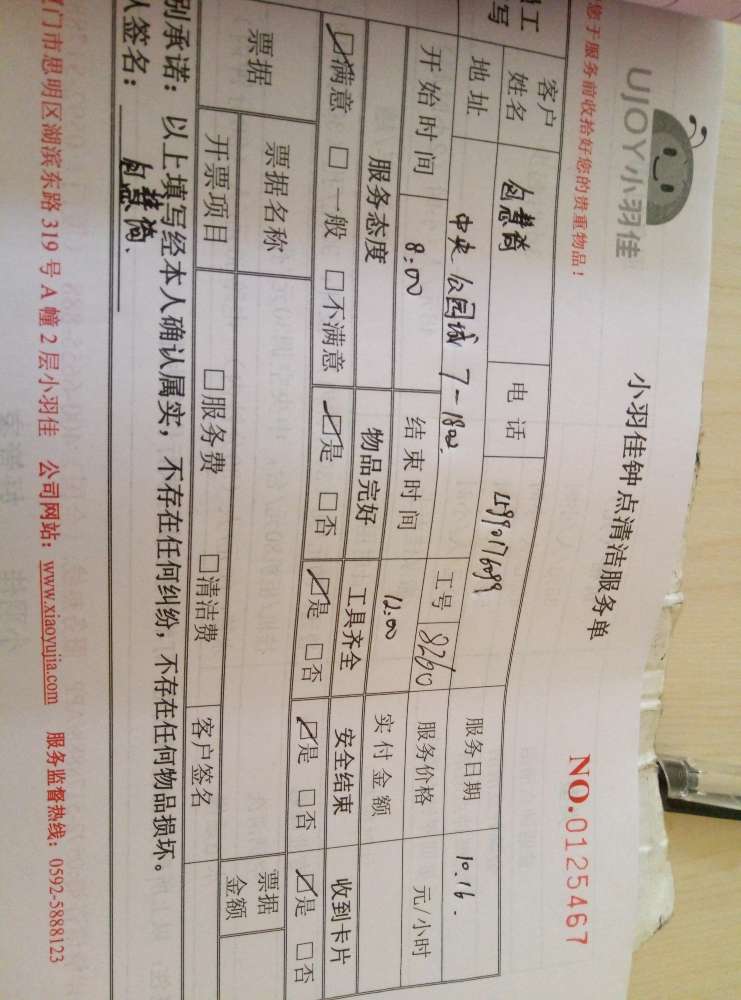 UJOY小羽佳
小羽佳钟点清洁服务单
NO.0125467
您于服务前收拾好您的贵重物品！
客户姓名 包慧尚 电话 服务日期 10.16.
地址 中央公园城 7-1802. 工号 8260 服务价格 元/小时
开始时间 8:00 结束时间 12:00 实付金额
服务态度 物品完好 工具齐全 安全结束 收到卡片
☑满意 □一般 □不满意 ☑是 □否 ☑是 □否 ☑是 □否 ☑是 □否
票据 票据名称 票据金额
开票项目 □服务费 □清洁费 客户签名
别承诺：以上填写经本人确认属实，不存在任何纠纷，不存在任何物品损坏。
人签名：包慧尚.
门市思明区湖滨东路319号A幢2层小羽佳 公司网站：www.xiaoyujia.com 服务监督热线：0592-5888123